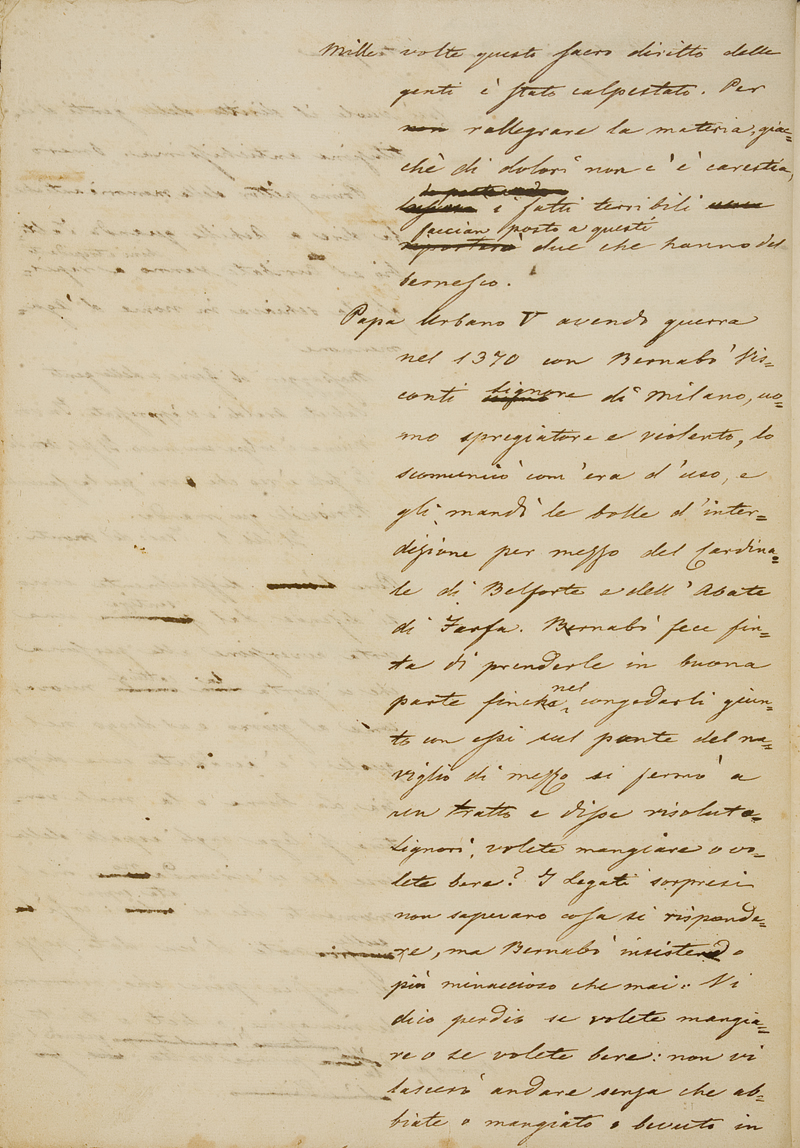 Mille volte questo sacro diritto delle
genti è stato calpestato. Per
non rallegrare la materia, giac=
chè di dolori non c'è carestia,
i fatti terribili
faccian posto a questi
riporterò due che hanno del
bernesco.
Papa Urbano V avendo guerra
nel 1370 con Bernabò Vis=
conti signore di Milano, uo=
mo spregiatore e violento, lo
scomunicò com'era d'uso, e
gli mandò le bolle d'inter=
dizione per mezzo del Cardina=
le di Belforte e dell'Abate
di Farfa. Bernabò fece fin=
ta di prenderle in buona
nel
parte finchè, congedarli giun=
to con essi sul ponte del na=
viglio di mezzo si fermò a
un tratto e disse risoluto=
Signori, volete mangiare o vo=
lete bere? I Legati sorpresi
non sapevano cosa si risponde=
re, ma Bernabò insistendo
più minaccioso che mai: Vi
dico perdio se volete mangia=
re o se volete bere: non vi
lascerò andare senza che ab=
biate o mangiato o bevuto in